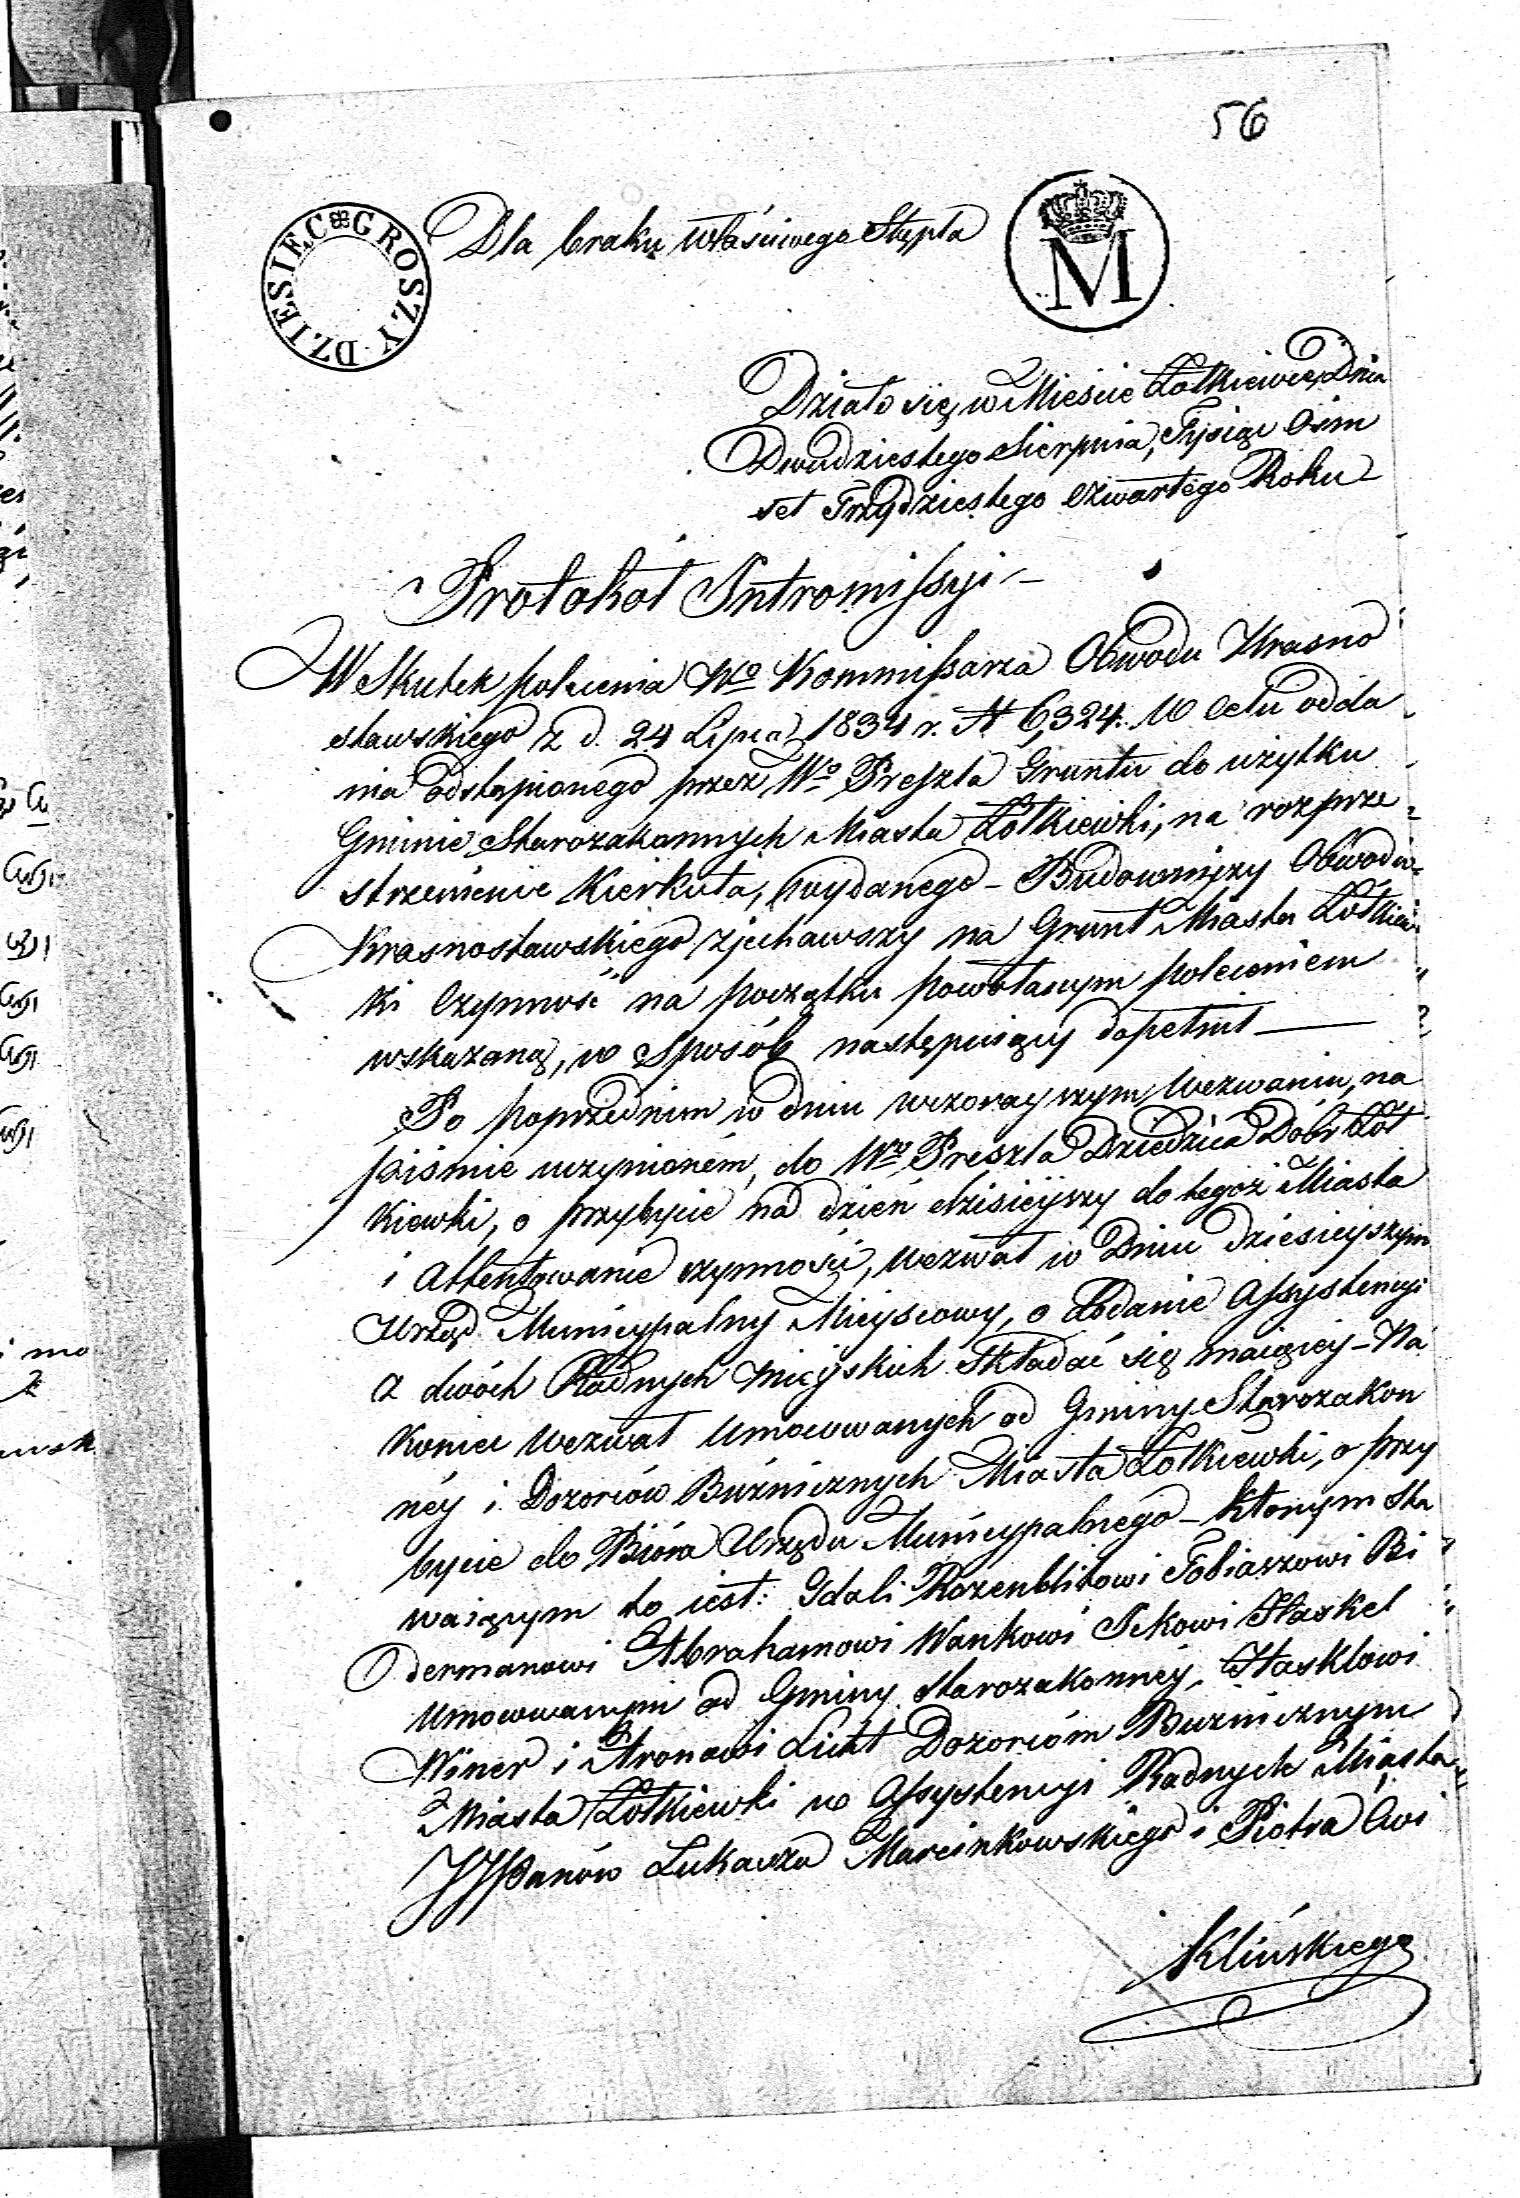 56
DZIESIEC GROSZY
Dla braku właściwego Stępla
M
Działo się w Mieście Żółkiewce Dnia
Dwudziestego Sierpnia, Tysiąc Ośm
set Trzydziestego Czwartego Roku
Protokół Intromissyi
W Skutek polecenia Wo Kommissarza Obwodu Krasno
stawskiego z d. 24 Lipca 1834 r. N 6,324. W Celu odda
nia odstąpionego przez Wo Preszla Gruntu do użytku
Gminie Starozakonnych Miasta Żółkiewki, na rozprze
strzenienie Kierkuta, wydanego - Budowniczy Obwodu
Krasnostawskiego zjechawszy na Grunt Miasta Żółkiew
ki Czynność na początku powołanym poleceniem
wskazaną, w Sposób następuiący dopełnił
Po poprzednim w dniu wczorayszym wezwaniu, na
piśmie uczynioném, do Wo Preszla Dziedzica Dóbr Żół
kiewki, o przybycie na dzień dzisieyszy do tegoż Miasta
i Attentowanie czynności, wezwał w Dniu dzisieyszym
Urząd Municypalny Mieyscowy, o dodanie Assystencyi
z dwóch Radnych mieyskich Składać się maiącey - Na
koniec wezwał Umocowanych od Gminy Starozakon
néy i Dozorców Bużnicznych Miasta Żółkiewki, o przy
bycie do Bióra Urzędu Municypalnego - którym sta
waiącym to iest: Idali Rozenblitowi Tobiaszowi Bi
dermanowi Abrahamowi Wankowi Ickowi Haskel
Umocowanym od Gminy starozakonnéy, Hasklowi
Winer i Aronowi Licht Dozorcóm Bużnicznym
Miasta Żółkiewki w Assystencyi Radnych Miasta
JJPanów Łukasza Marcinkowskiego i Piotra Ćwi
klińskiego